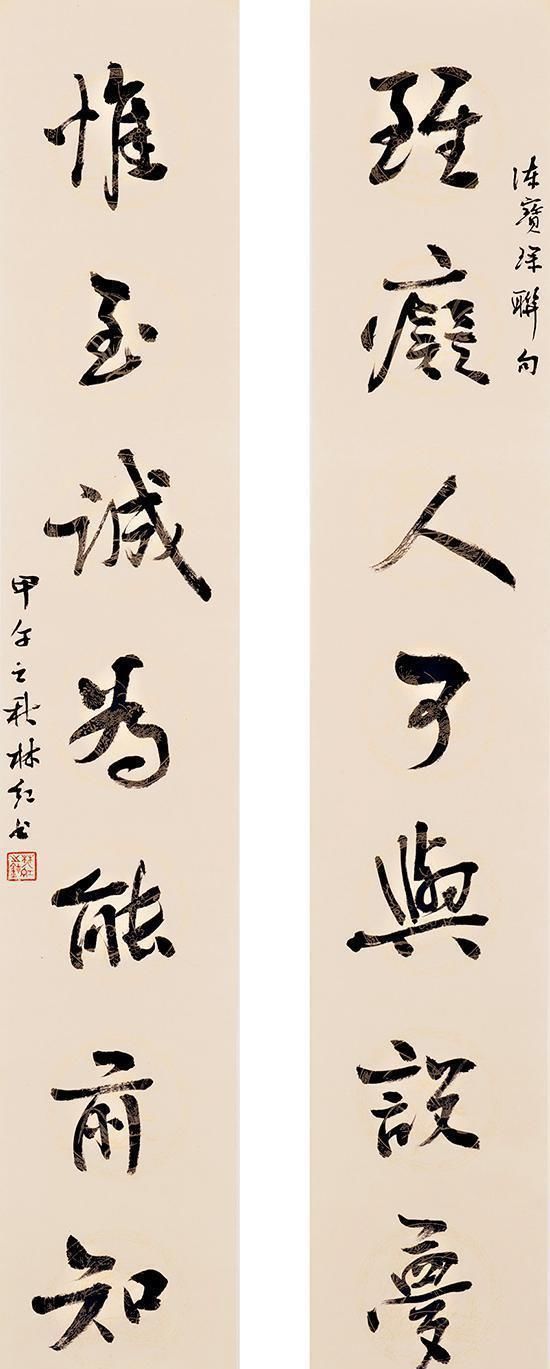 陳寶琛聯句
雖癡人可與說夢
惟至誠為能前知
甲午之秋林紅書